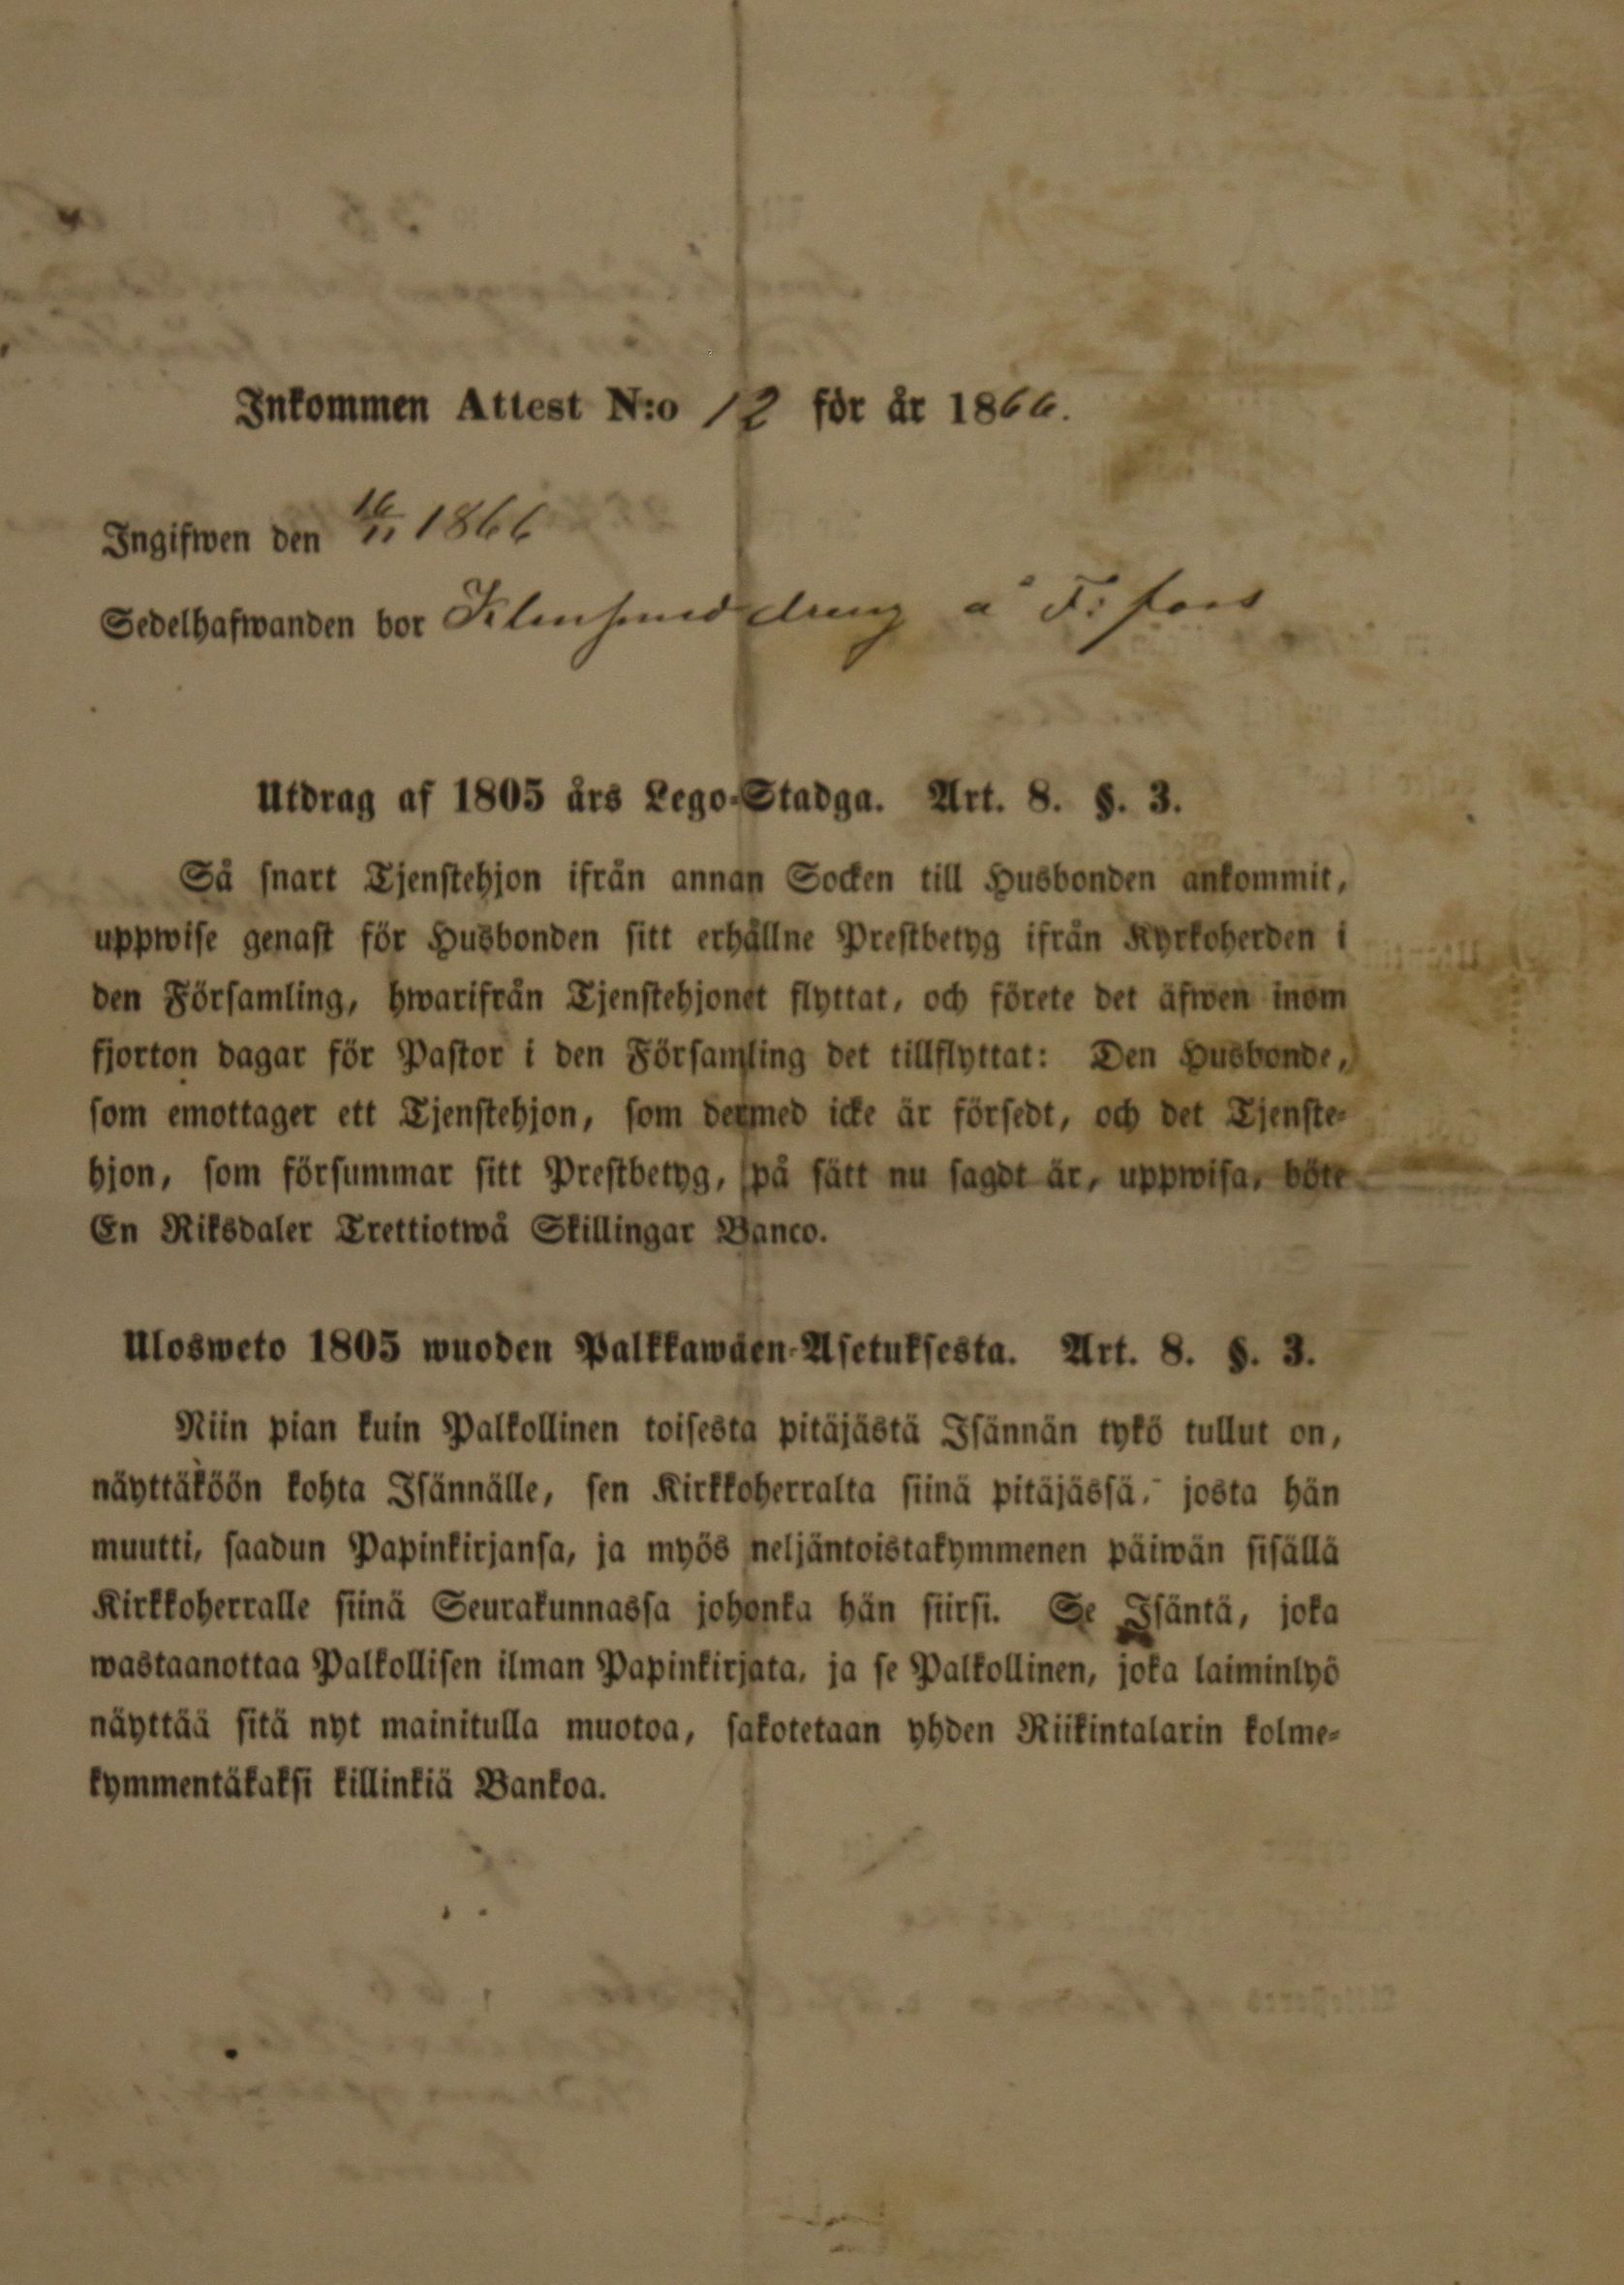 Inkommen Attest N:o 12 för år 1866.
Ingifwen den 16/11 1866
Sedelhafwanden bor Klensmed dreng å F: fors
Utdrag af 1805 års Lego-Stadga. Art. 8. §. 3.
Så snart Tjenstehjon ifrån annan Socken till Husbonden ankommit,
uppwise genast för Husbonden sitt erhållne Prestbetyg ifrån Kyrkoherden i
den Församling, hwarifrån Tjenstehjonet flyttat, och förete det äfwen inom
fjorton dagar för Pastor i den Församling det tillflyttat: Den Husbonde,
som emottager ett Tjenstehjon, som dermed icke är försedt, och det Tjenste-
hjon, som försummar sitt Prestbetyg, på sätt nu sagdt är, uppwisa, böte
En Riksdaler Trettiotwå Skillingar Banco.
Ulosweto 1805 wuoden Palkkawäen-Asetuksesta. Art. 8. §. 3.
Niin pian kuin Palkollinen toisesta pitäjästä Isännän tykö tullut on,
näyttäköön kohta Isännälle, sen Kirkkoherralta siinä pitäjässä, josta hän
muutti, saadun Papinkirjansa, ja myös neljäntoistakymmenen päiwän sisällä
Kirkkoherralle siinä Seurakunnassa johonka hän siirsi. Se Isäntä, joka
wastaanottaa Palkollisen ilman Papinkirjata, ja se Palkollinen, joka laiminlyö
näyttää sitä nyt mainitulla muotoa, sakotetaan yhden Riikintalarin kolme-
kymmentäkaksi killinkiä Bankoa.